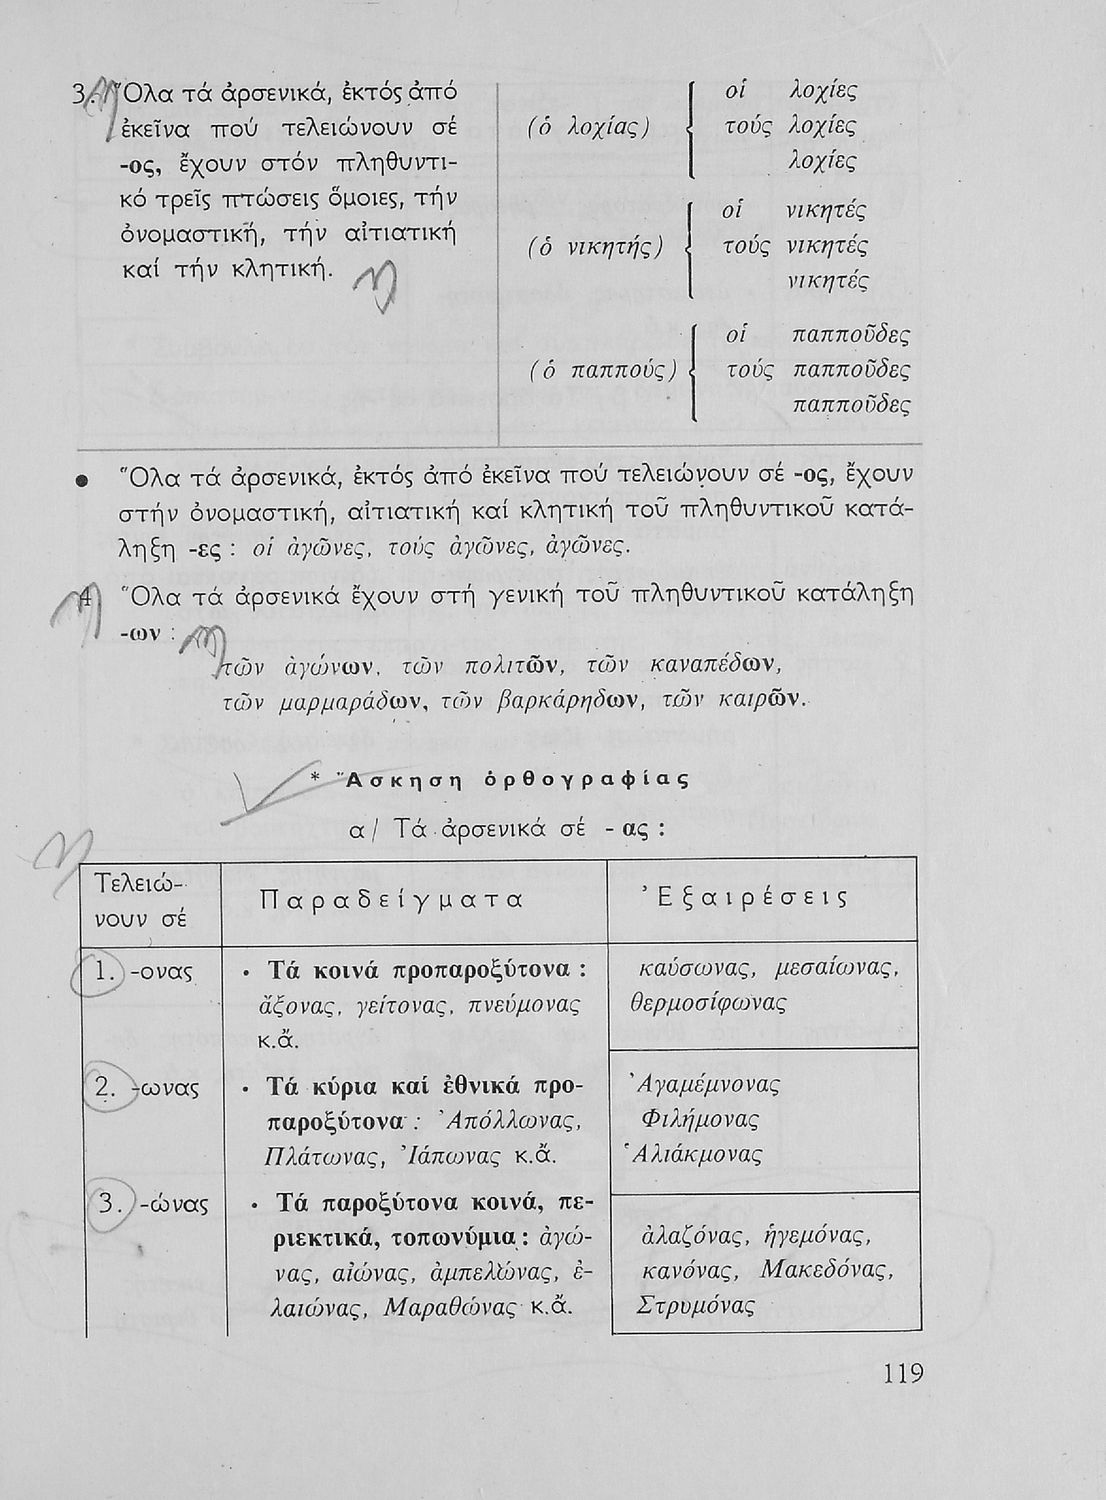 3. Ὅλα τά ἀρσενικά, ἐκτός ἀπό
ἐκεῖνα πού τελειώνουν σέ
-ος, ἔχουν στόν πληθυντι-
κό τρεῖς πτώσεις ὅμοιες, τήν
ὀνομαστική, τήν αἰτιατική
καί τήν κλητική.
οἱ λοχίες
(ὁ λοχίας) τούς λοχίες
λοχίες
οἱ νικητές
(ὁ νικητής) τούς νικητές
νικητές
οἱ παπποῦδες
(ὁ παππούς) τούς παπποῦδες
παπποῦδες
• Ὅλα τά ἀρσενικά, ἐκτός ἀπό ἐκεῖνα πού τελειώνουν σέ -ος, ἔχουν
στήν ὀνομαστική, αἰτιατική καί κλητική τοῦ πληθυντικοῦ κατά-
ληξη -ες : οἱ ἀγῶνες, τούς ἀγῶνες, ἀγῶνες.
4 Ὅλα τά ἀρσενικά ἔχουν στή γενική τοῦ πληθυντικοῦ κατάληξη
-ων :
τῶν ἀγώνων, τῶν πολιτῶν, τῶν καναπέδων,
τῶν μαρμαράδων, τῶν βαρκάρηδων, τῶν καιρῶν.
* Ἄσκηση ὀρθογραφίας
α / Τά ἀρσενικά σέ - ας :
Τελειώ-
νουν σέ
Παραδείγματα
Ἐξαιρέσεις
1. -ονας
• Τά κοινά προπαροξύτονα :
ἄξονας, γείτονας, πνεύμονας
κ.ἄ.
καύσωνας, μεσαίωνας,
θερμοσίφωνας
2. -ωνας
• Τά κύρια καί ἐθνικά προ-
παροξύτονα : Ἀπόλλωνας,
Πλάτωνας, Ἰάπωνας κ.ἄ.
Ἀγαμέμνονας
Φιλήμονας
Ἁλιάκμονας
3. -ώνας
• Τά παροξύτονα κοινά, πε-
ριεκτικά, τοπωνύμια : ἀγώ-
νας, αἰώνας, ἀμπελώνας, ἐ-
λαιώνας, Μαραθώνας κ.ἄ.
ἀλαζόνας, ἡγεμόνας,
κανόνας, Μακεδόνας,
Στρυμόνας
119